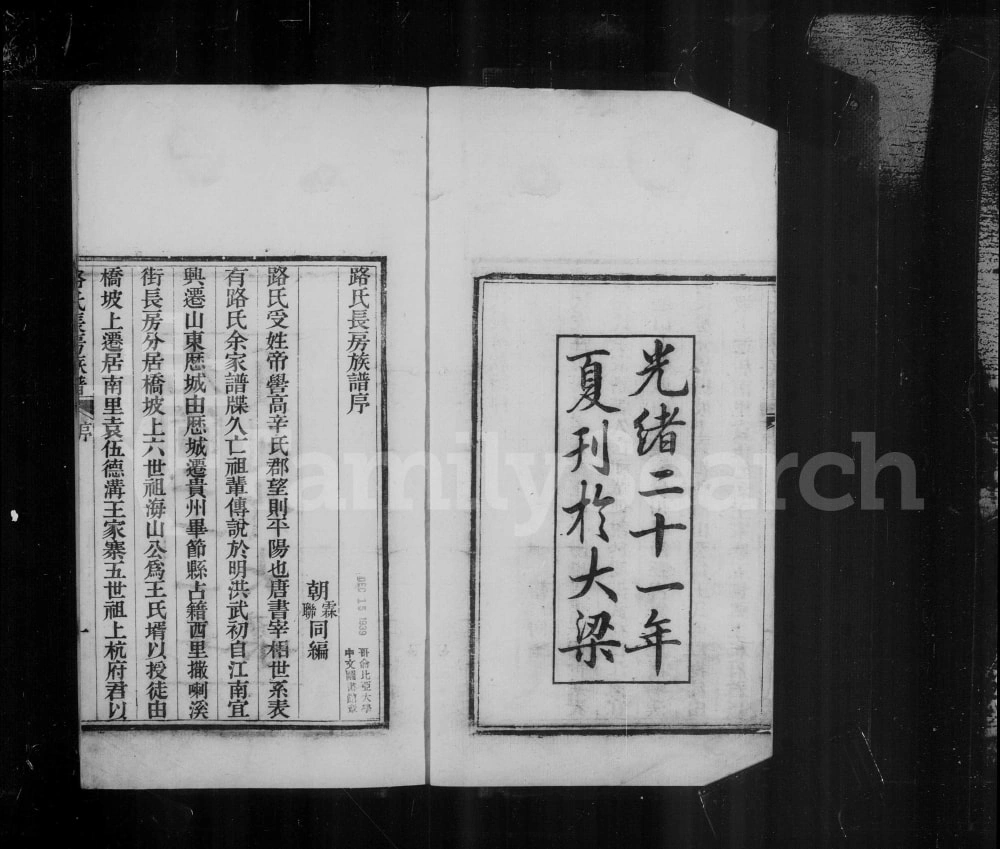 光緒二十一年
夏刊於大梁
路氏長房族譜序
朝霖聯同編
路氏受姓帝嚳高辛氏郡望則平陽也唐書宰相世系表
有路氏余家譜牒久亡祖輩傳說於明洪武初自江南宜
興遷山東歷城由歷城遷貴州畢節縣占籍西里撒喇溪
街長房分居橋坡上六世祖海山公爲王氏壻以授徒由
橋坡上遷居南里袁伍德溝王家寨五世祖上杭府君以
路氏長房族譜 序 一
DEC 15 1939
哥倫比亞大學
中文圖書館藏
FamilySearch